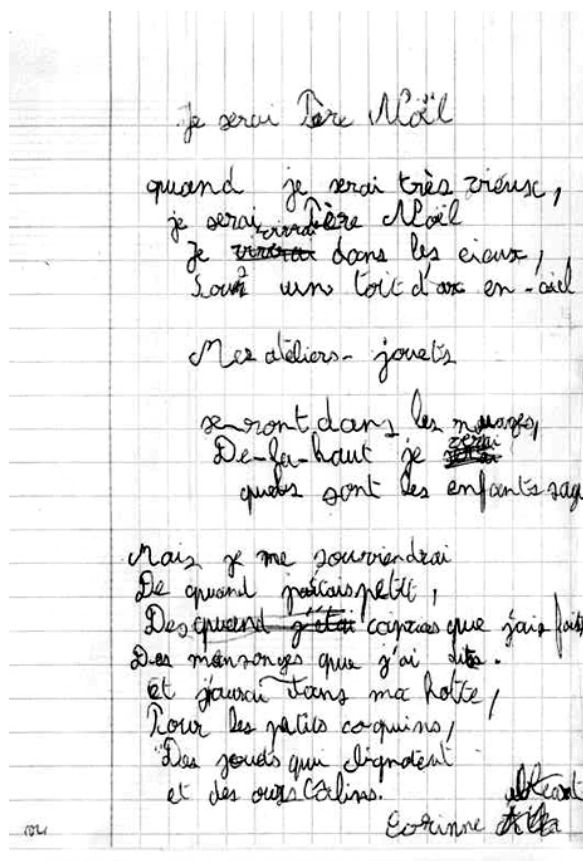 Je serai Père Noël
quand je serai très vieux,
je serai Père Noël
vivrai
Je dans les cieux,
Sous un toit d'arc en-ciel
Mes atéliers-jouets
seront dans les nuages,
De-la-haut je serai
quels sont les enfants sag
Mais je me souviendrai
De quand j'étais petit,
Des caprices que j'ais fait
Des mensonges que j'ai dits.
et j'aurai dans ma hotte,
Pour les petits coquins,
Des jouets qui clignotent
et des ours Calins.
Corinne